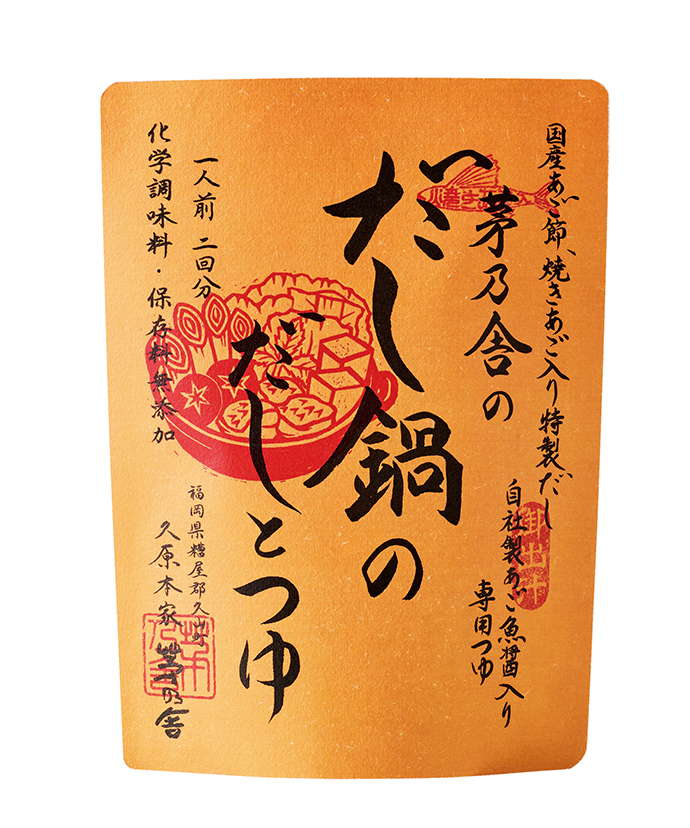 国産あご節、焼きあご入り特製だし
自社製あご魚醤入り
専用つゆ
茅乃舎の
だし鍋の
だしとつゆ
一人前 二回分
化学調味料・保存料無添加
福岡県糟屋郡久山町
久原本家 茅乃舎